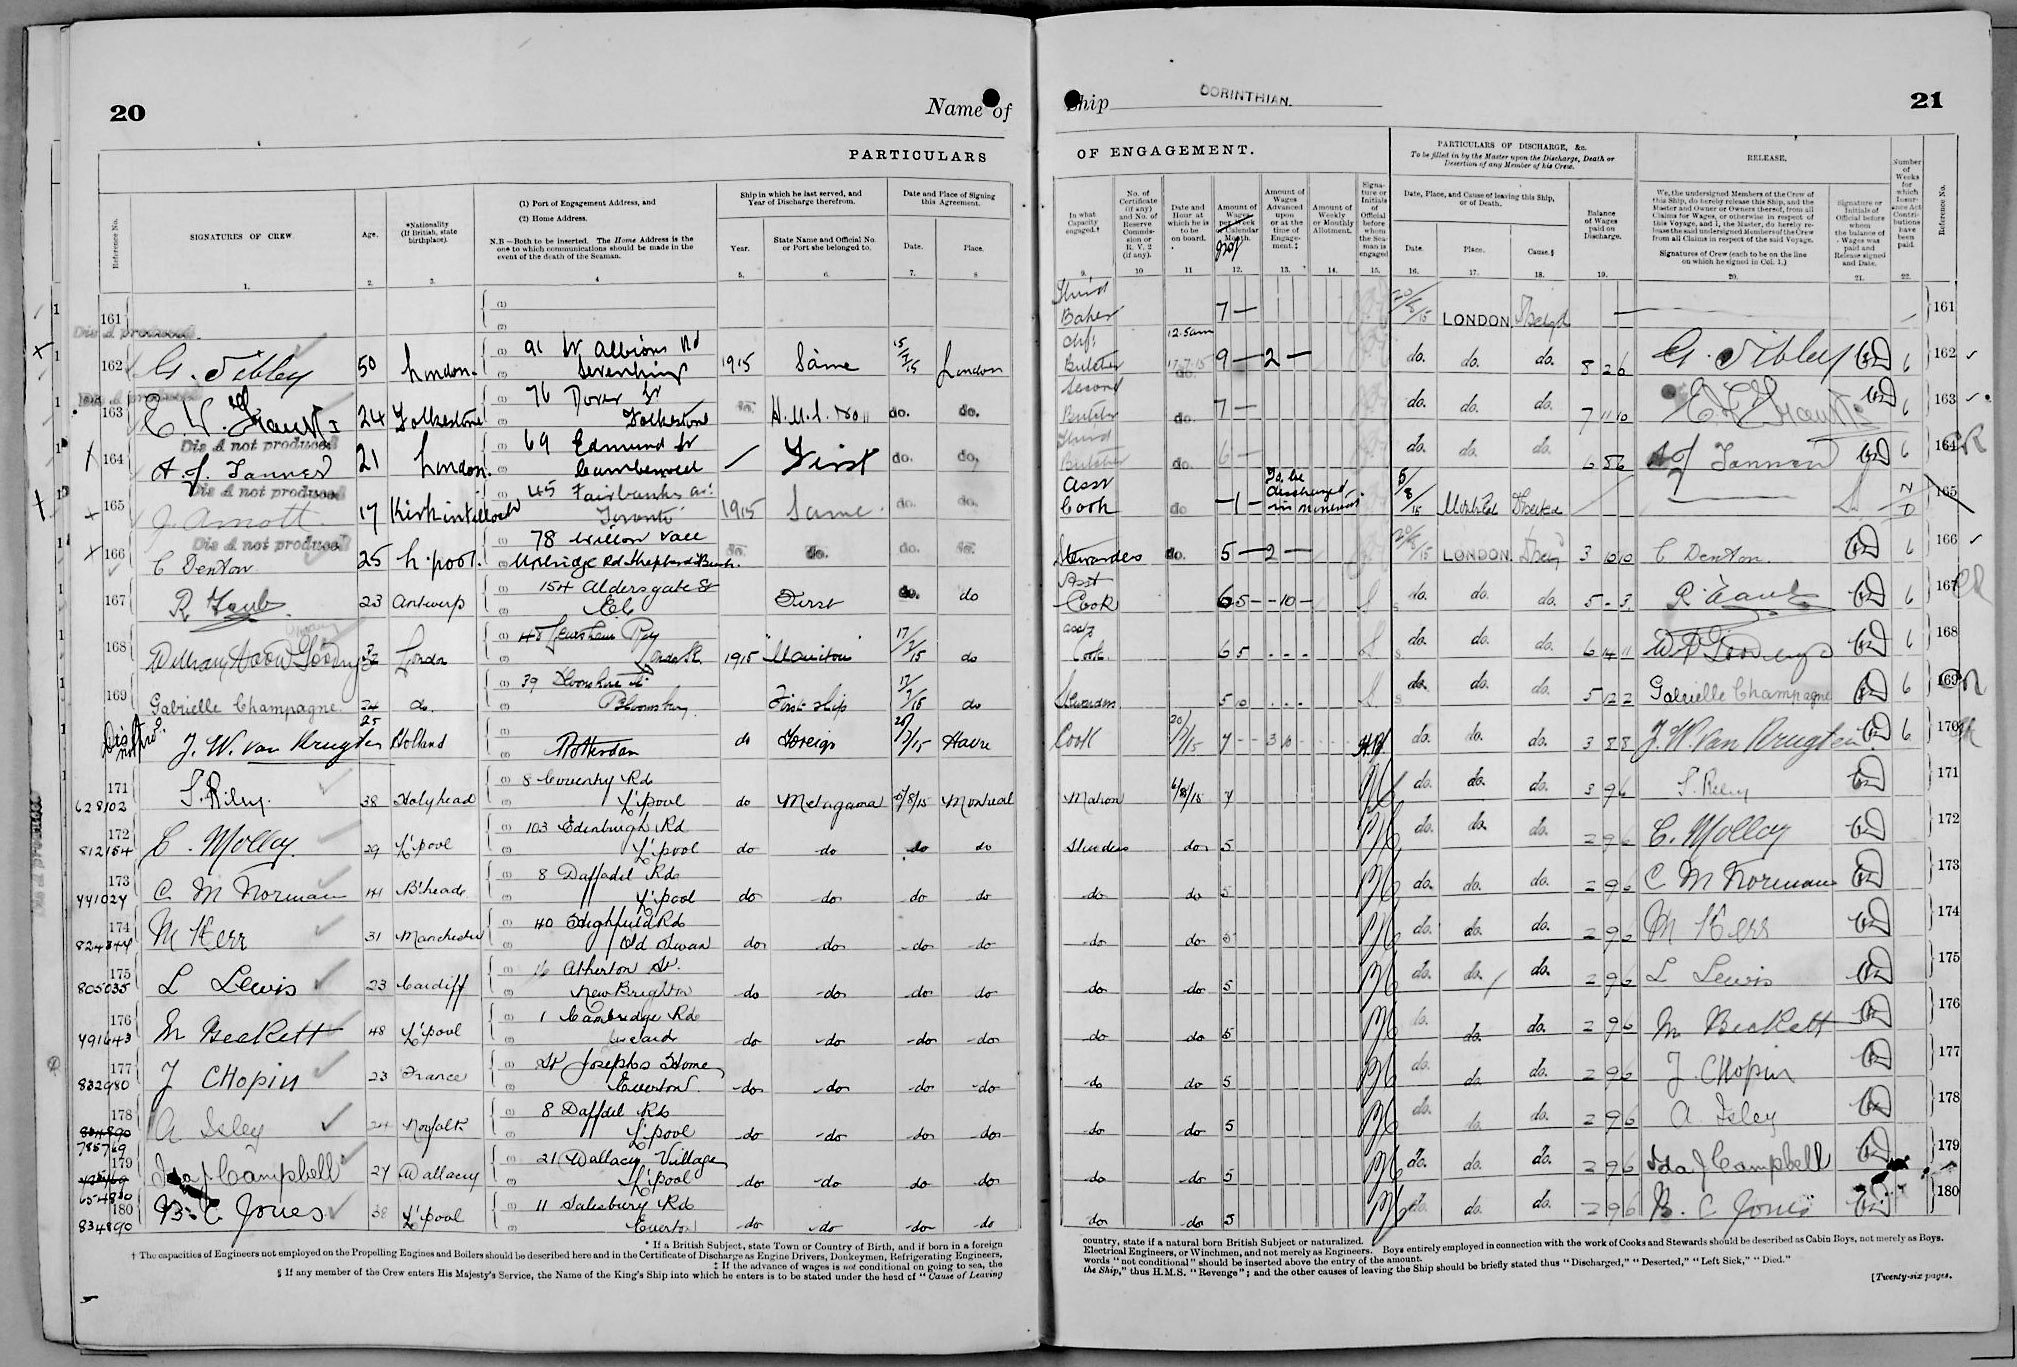 20
Name of
Ship CORINTHIAN.
21
PARTICULARS
OF ENGAGEMENT.
PARTICULARS OF DISCHARGE, &c.
To be filled in by the Master upon the Discharge, Death or
Desertion of any Member of his Crew.
RELEASE.
Reference No.
SIGNATURES OF CREW
1.
Age.
2.
*Nationality
(If British, state
birthplace).
3.
(1) Port of Engagement Address, and
(2) Home Address.
N.B—Both to be inserted. The Home Address is the
one to which communications should be made in the
event of the death of the Seaman.
4
Ship in which he last served, and
Year of Discharge therefrom.
Year.
5.
State Name and Official No.
or Port she belonged to.
6.
Date and Place of Signing
this Agreement.
Date.
7.
Place.
8
In what
Capacity
engaged.†
9.
No. of
Certificate
(if any)
and No. of
Reserve
Commis-
sion or
R. V. 2
(if any).
10
Date and
Hour at
which he is
to be
on board.
11
Amount of
Wages
per Week
Calendar
Month.
12.
Amount of
Wages
Advanced
upon
or at the
time of
Engage-
ment.‡
13.
Amount of
Weekly
or Monthly
Allotment.
14.
Signa-
ture or
Initials
of
Official
before
whom
the Sea-
man is
engaged
15.
Date, Place, and Cause of leaving this Ship,
or of Death.
Date.
16.
Place.
17.
Cause.§
18.
Balance
of Wages
paid on
Discharge.
19.
We, the undersigned Members of the Crew of
this Ship, do hereby release this Ship, and the
Master and Owner or Owners thereof, from all
Claims for Wages, or otherwise in respect of
this Voyage, and I, the Master, do hereby re-
lease the said undersigned Members of the Crew
from all Claims in respect of the said Voyage.
Signatures of Crew (each to be on the line
on which he signed in Col. 1.)
20.
Signature or
Initials of
Official before
whom
the balance of
Wages was
paid and
Release signed
and Date.
21.
Number
of
Weeks
for
which
Insur-
ance Act
Contri-
butions
have
been
paid.
22.
Reference No.
161 Third Baker 7 — LONDON 161
Dis A produced
162 G. Sibley 50 London. 91 Albions Rd 1915 Same 15/7/15 London Chf Butcher 12.5am 17.7.15 9 — 2 — do. do. do. 8 2 6 G. Sibley 6 162
163 24 Folkestone 76 Dover St Folkestone do. do. do. Second Butcher do. 7 — do. do. do. 7 11 10 6 163
Dis A not produced
164 A. J. Tanner 21 London. 69 Edmund St Camberwell — First do. do. Third Butcher do. 6 — do. do. do. 6 8 6 A J Tanner 6 164
Dis A not produced
165 J. Arnott 17 Kirkintilloch 45 Fairbanks Av. Toronto 1915 Same do. do. Asst Cook do — 1 — To be discharged in Montreal 5/8/15 165
Dis A not produced
166 C Denton 25 L'pool. 78 Willow Vale Uxbridge Rd Shepherds Bush. do. do. do. do. Stewardess do. 5 — 2 — LONDON. 3 10 10 C Denton 6 166
167 23 Antwerp 154 Aldersgate St EC First do. do Asst Cook 6 5 — 10 — do. do. do. 5 - 3 6 167
168 London 1915 17/7/15 do Asst Cook 6 5 do. do. do. 6 14 11 6 168
169 Gabrielle Champagne 24 do. 39 Bloomsbury First ship 17/7/15 do Stewardess 5 10 do. do. do. 5 12 2 Gabrielle Champagne 6 169
170 J. W. van Kruyten 25 Holland Rotterdam do Foreign 20/7/15 Havre Cook 20/7/15 7 - - 3 10 do. do. do. 3 8 8 J. W. van Kruyten 6 170
171 628102 S. Riley 38 Holyhead 8 Coventry Rd L'pool do Metagama 5/8/15 Montreal Matron 6/8/15 7 do. do. do. 3 9 6 S. Riley 171
172 812154 C. Molloy 29 L'pool 103 Edinburgh Rd L'pool do do do do Stewardess do 5 do. do. do. 2 9 6 C. Molloy 172
173 441024 C M Norman 41 B'head 8 Daffodil Rd L'pool do do do do do do 5 do. do. do. 2 9 6 C M Norman 173
174 824344 M Kerr 31 Manchester 40 Highfield Rd Old Swan do do do do do do 5 do. do. do. 2 9 6 M Kerr 174
175 805035 L Lewis 23 Cardiff 16 Atherton St. New Brighton do do do do do do 5 do. do. do. 2 9 6 L Lewis 175
176 491643 M Beckett 48 L'pool 1 Cambridge Rd do do do do do do 5 do. do. do. 2 9 6 M Beckett 176
177 832980 J Chopin 23 France St Josephs Home Everton do do do do do do 5 do. do. do. 2 9 6 J Chopin 177
178 834890 785769 A Isley 24 Norfolk 8 Daffdil Rd L'pool do do do do do do 5 do. do. do. 2 9 6 A Isley 178
179 654830 Ida J Campbell 27 Wallacey 21 Wallacey Village L'pool do do do do do do 5 do. do. do. 2 9 6 Ida J Campbell 179
180 834890 B. C Jones 38 L'pool 11 Salesbury Rd Everton do do do do do do 5 do. do. do. 2 9 6 B. C Jones 180
* If a British Subject, state Town or Country of Birth, and if born in a foreign
† The capacities of Engineers not employed on the Propelling Engines and Boilers should be described here and in the Certificate of Discharge as Engine Drivers, Donkeymen, Refrigerating Engineers,
‡ If the advance of wages is not conditional on going to sea, the
§ If any member of the Crew enters His Majesty's Service, the Name of the King's Ship into which he enters is to be stated under the head of "Cause of Leaving
country, state if a natural born British Subject or naturalized.
Electrical Engineers, or Winchmen, and not merely as Engineers. Boys entirely employed in connection with the work of Cooks and Stewards should be described as Cabin Boys, not merely as Boys.
words "not conditional" should be inserted above the entry of the amount.
the Ship," thus H.M.S. "Revenge"; and the other causes of leaving the Ship should be briefly stated thus "Discharged," "Deserted," "Left Sick," "Died."
[Twenty-six pages.